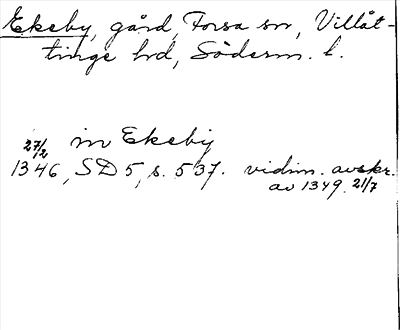 Ekeby, gård, Forsa sn, Villåt-
tinge hd, Söderm. l.
in Ekeby
27/2
1346, SD 5, s. 537. vidim. avskr.
av 1349 21/7